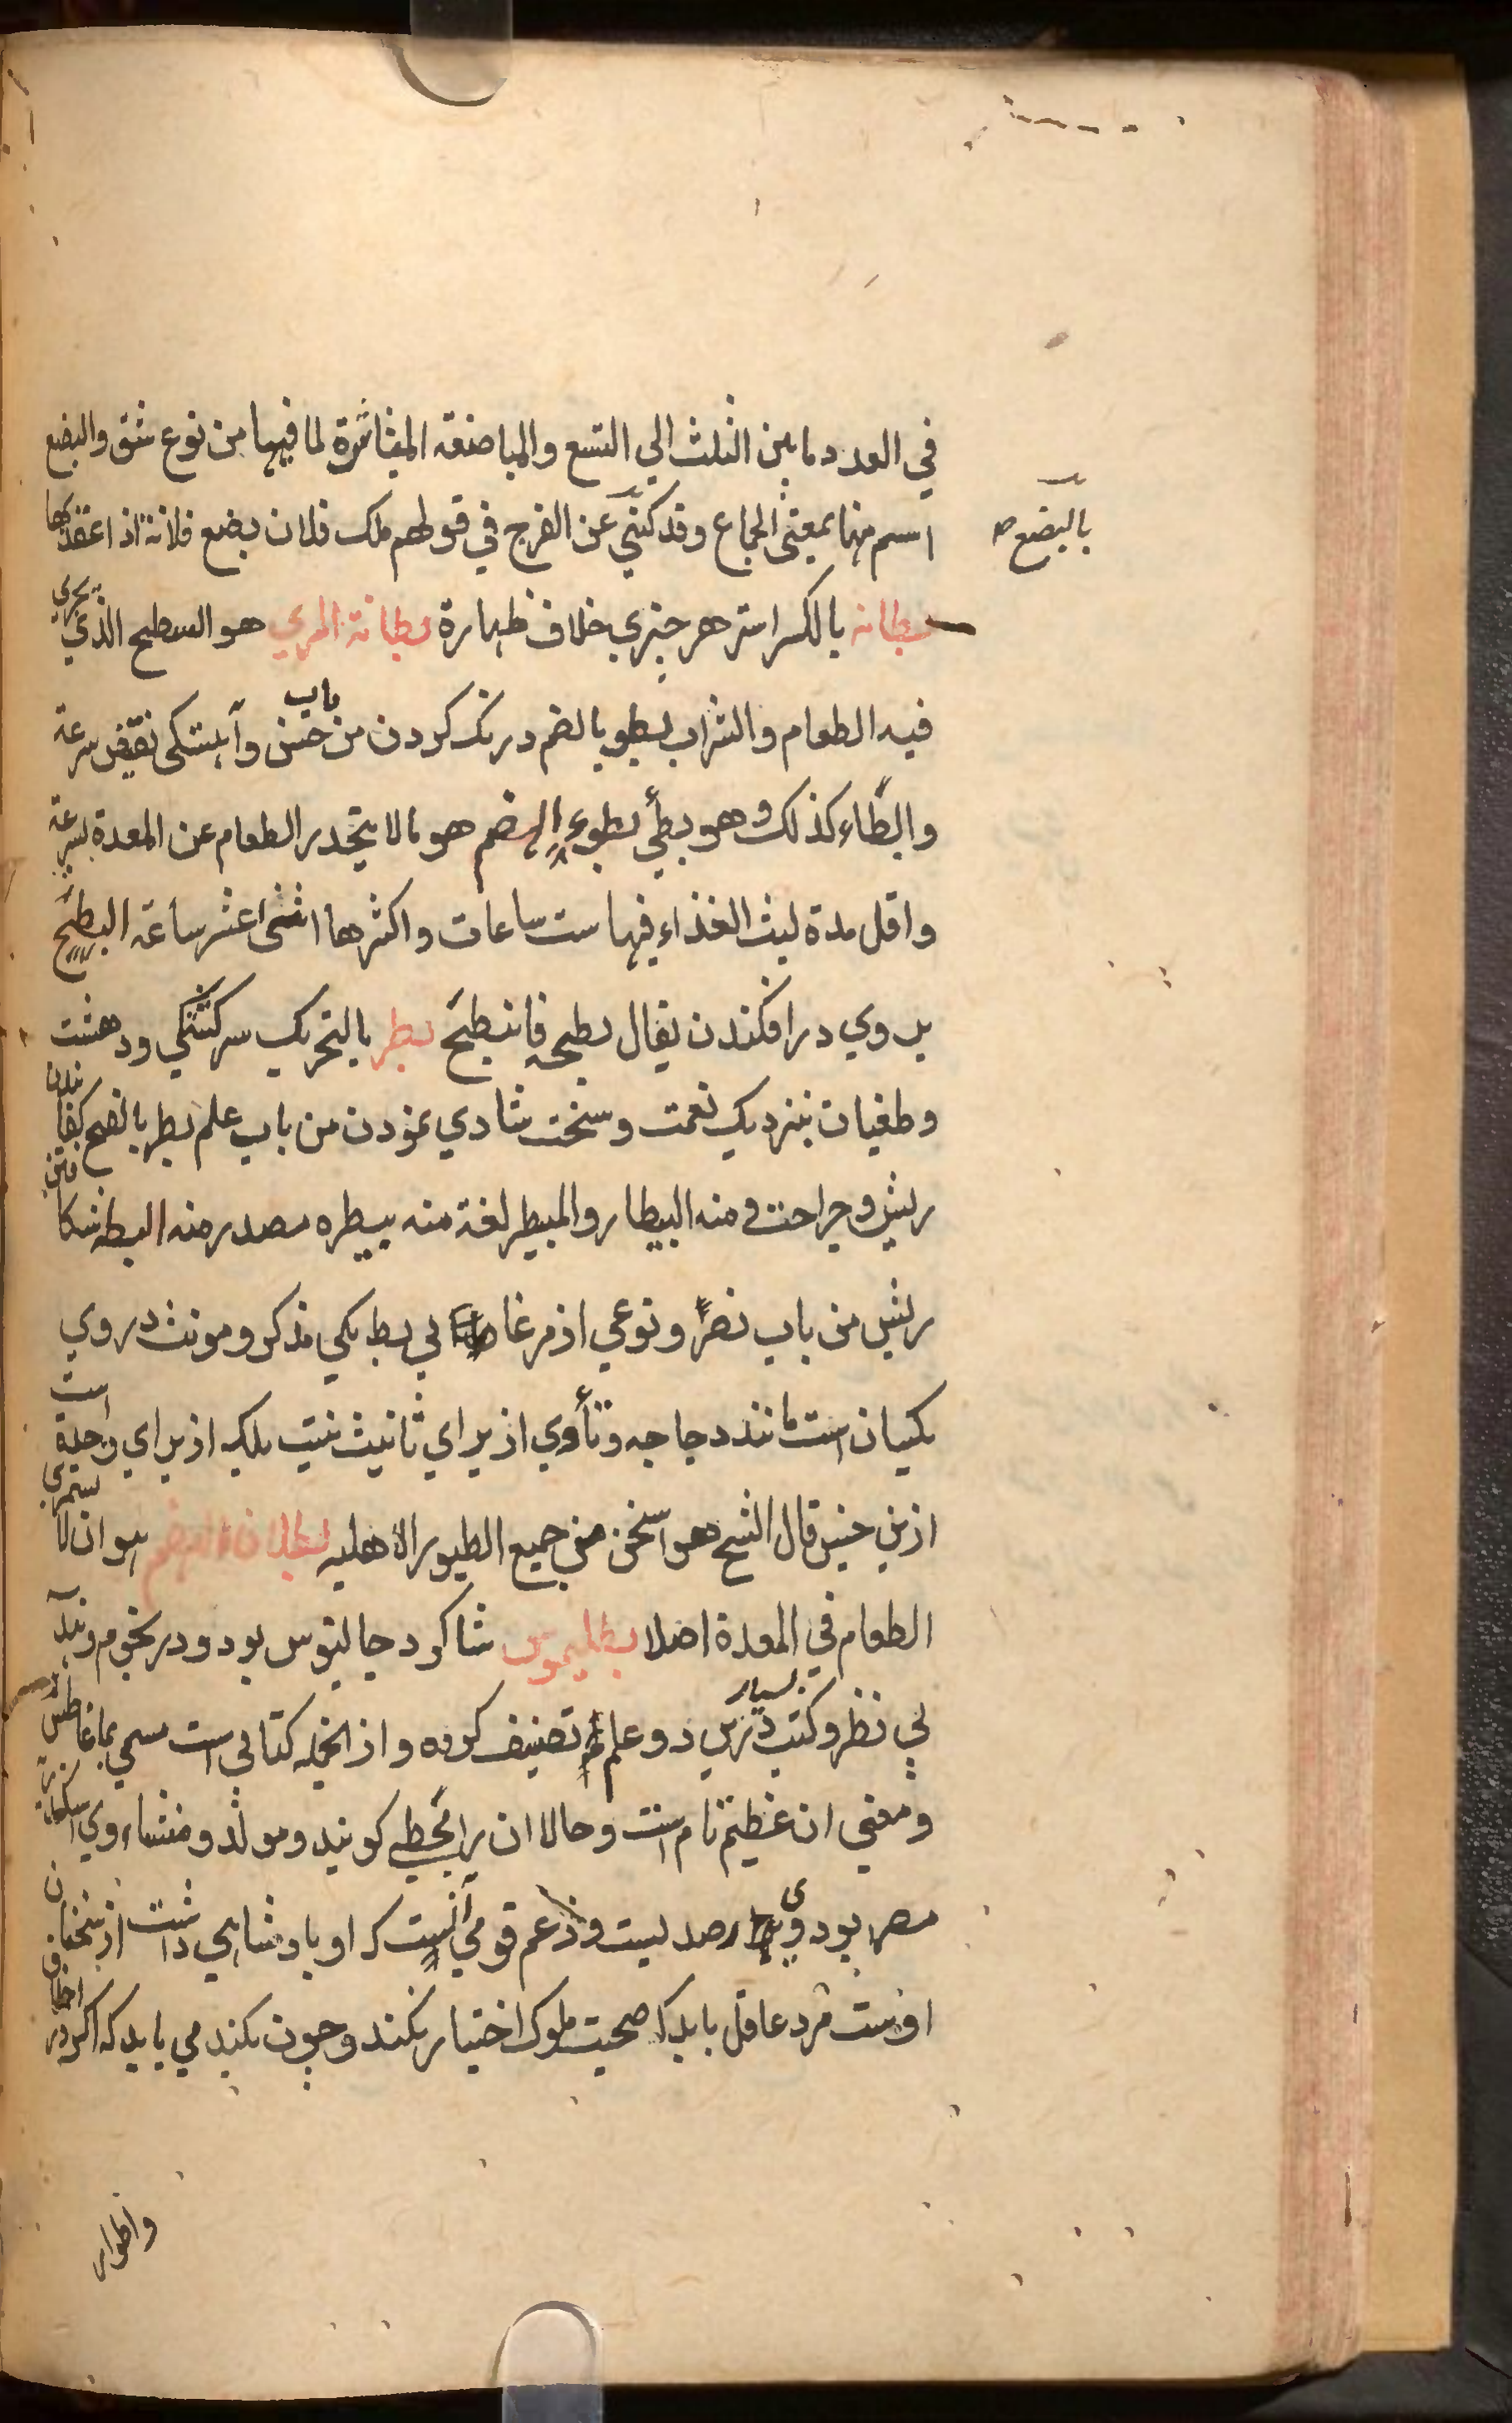 في العدد ما بين الثلث الي التسع والمباضعه المباشرة لما فيها من نوع شق والبضع
اسم منها بمعنى الجماع وقد كني بالبضع عن الفرج في قولهم ملك فلان بضع فلانة اذا عقد بها
بطانه بالكسر استر هر چيزي خلاف ظهارة بطانة المري هو السطح الذي يجري
فيه الطعام والشراب بطو بالضم درنك كردن من باب حسن وآهستكى نقيض سرعة
والبطاء كذلك وهو بطئ بطوء الهضم هو ما لا ينحدر الطعام عن المعدة بسرعة
واقل مدة لبث الغذاء فيها ست ساعات واكثرها اثنى عشر ساعة البطح
بر وي در افكندن يقال بطحه فانبطح بطر بالتحريك سركشتكي ودهشت
وطغيان بنزديك نعمت وسخت شادي نمودن من باب علم بطر بالفتح كفانيدن
ريش وجراحت ومنه البيطار والمبيطر لغة منه بيطره مصدر منه البط شكافتن
ريش من باب نصر ونوعي از مرغا بي بط يكي مذكر ومونث در وي
يكسان است مانند دجاجه وتأ وي از براي تانيث نيست بلكه از براي وحدة است
ازين جنس قال الشيخ هو اسخن من جميع الطيور الاهليه بطلان الهضم هو ان لا يستمري
الطعام في المعدة اصلا بطليموس شاكرد جالينوس بود ودر نجوم
بي نظر وكتب بسيار درين دو علم تصنيف كرده واز انجمله كتابي است مسمي
ومعني ان عظيم تام است وحالا ان را مجسطي كويند ومولد ومنشاء وي
مصر بود وي رصد بست وزعم قومي آنست كه او بادشاهي داشت از سخنان
اوست مرد عاقل بايد كه صحبت ملوك اختيار نكند وچون بكند مي بايد كه اكر در اخلاق
واطوار